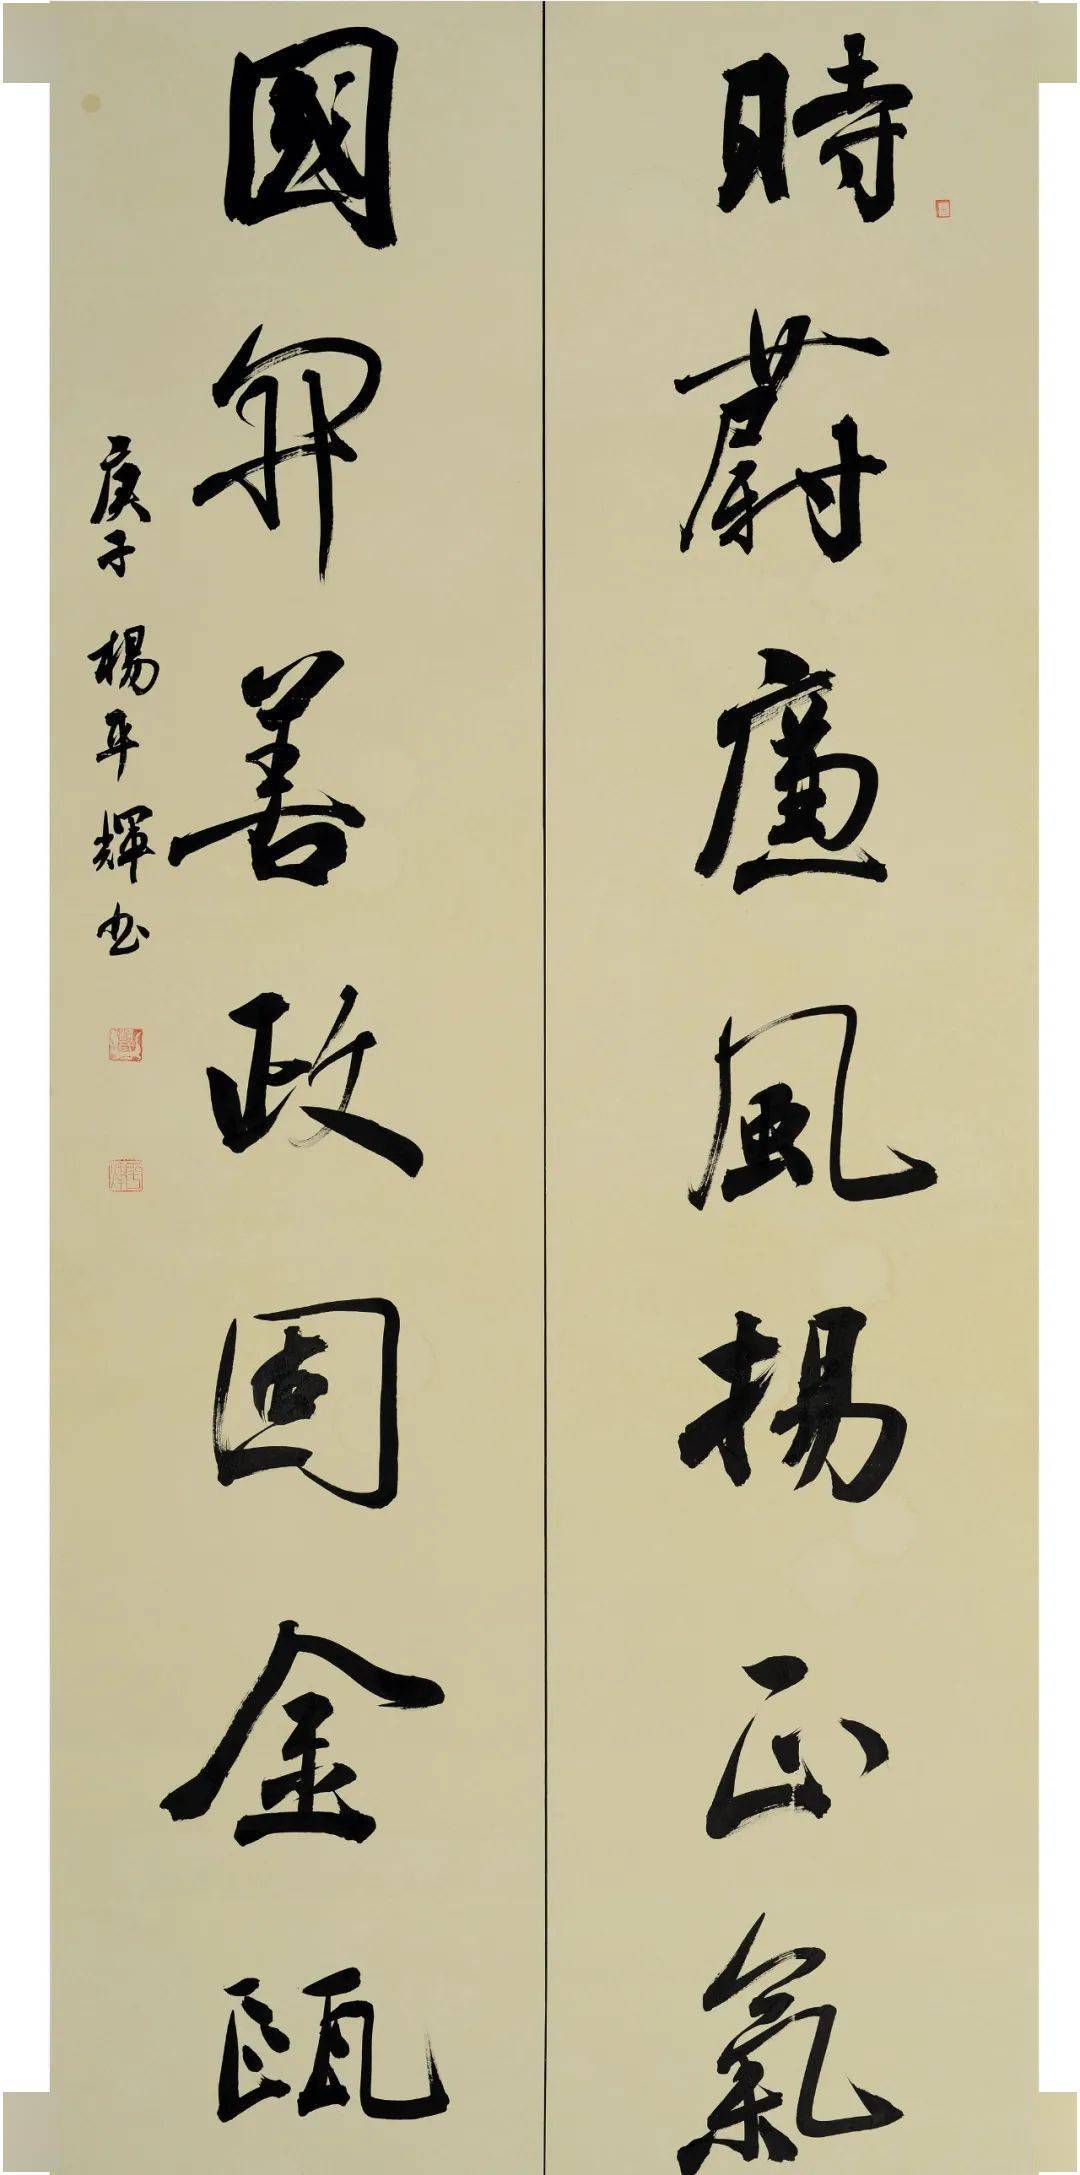 時蔚廉風揚正氣
國開善政固金甌
庚子 楊平輝书